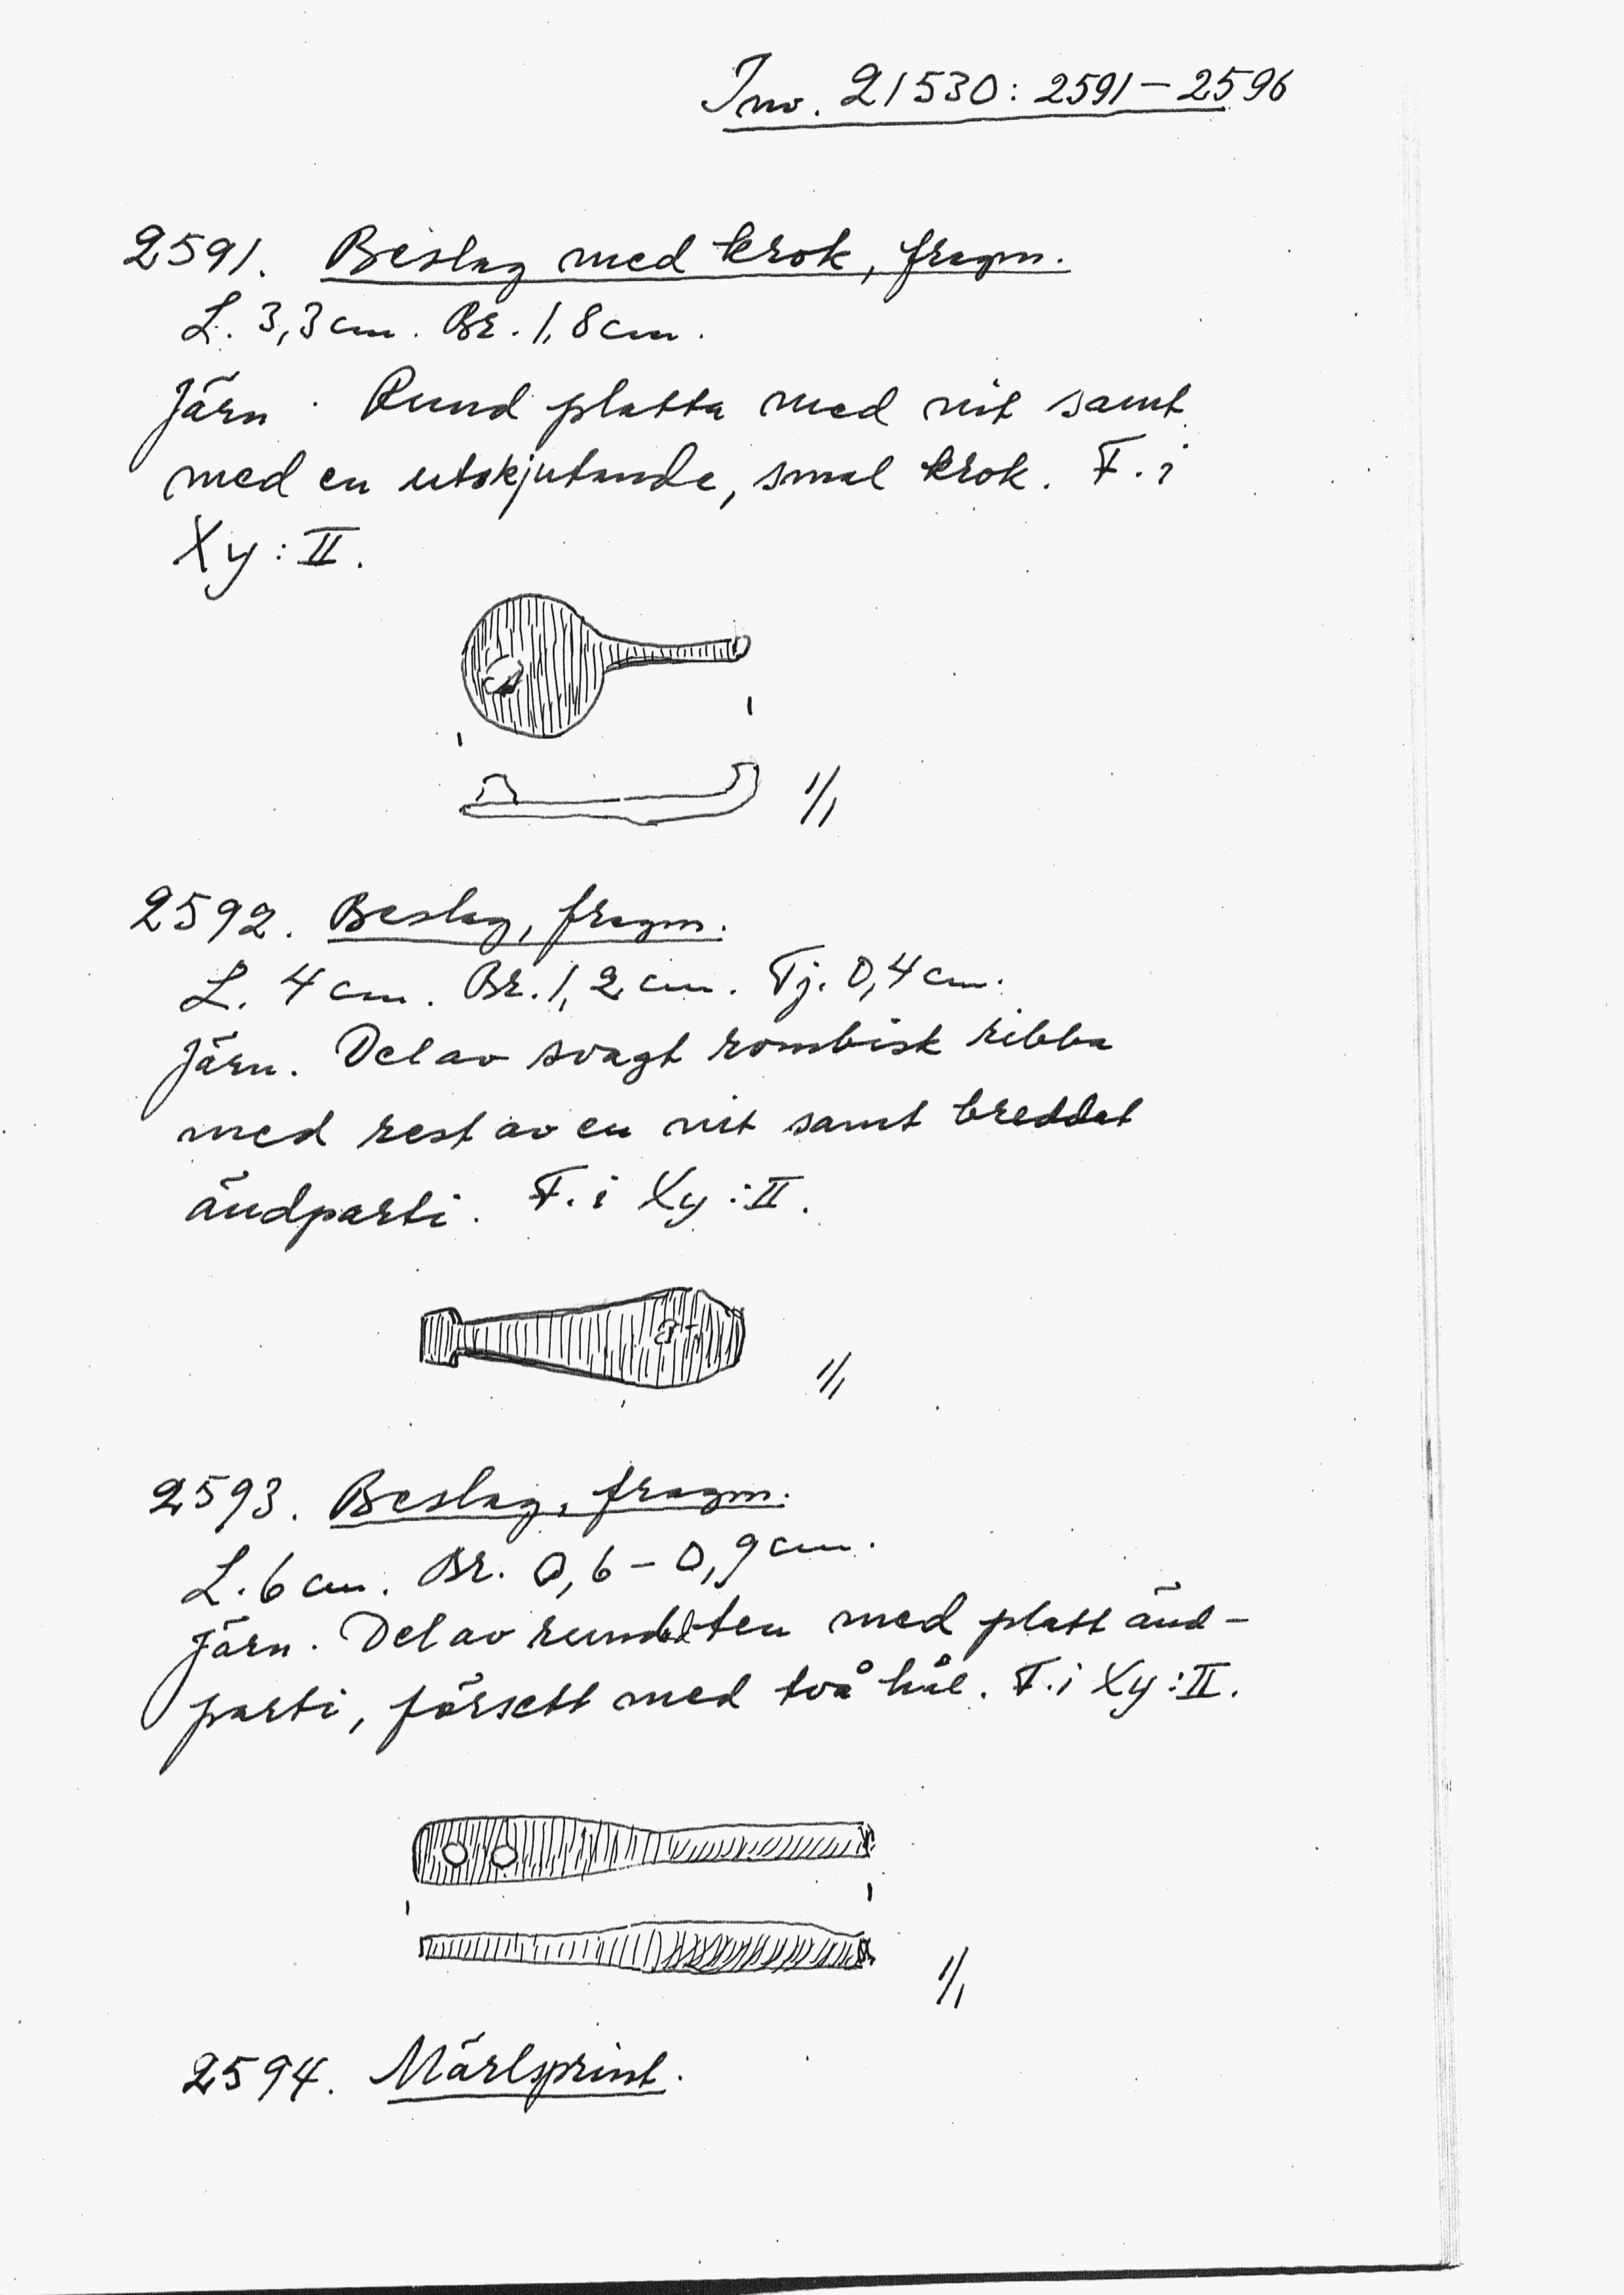 Inv. 21530: 2591-2596
2591. Beslag med krok, fragm.
L. 3,3 cm. Br. 1,8 cm.
Järn. Rund platta med nit samt
med en utskjutande, smal krok. F. i
Xy: II.
1/1
2592. Beslag, fragm.
L. 4 cm. Br. 1,2 cm. Tj. 0,4 cm.
Järn. Del av svagt rombisk ribba
med rest av en nit samt breddat
ändparti. F. i Xy: II.
1/1
2593. Beslag, fragm.
L. 6 cm. Br. 0,6-0,9 cm.
Järn. Del av rund ten med platt änd-
parti, försett med två hål. F. i Xy: II.
1/1
2594. Märlsprint.